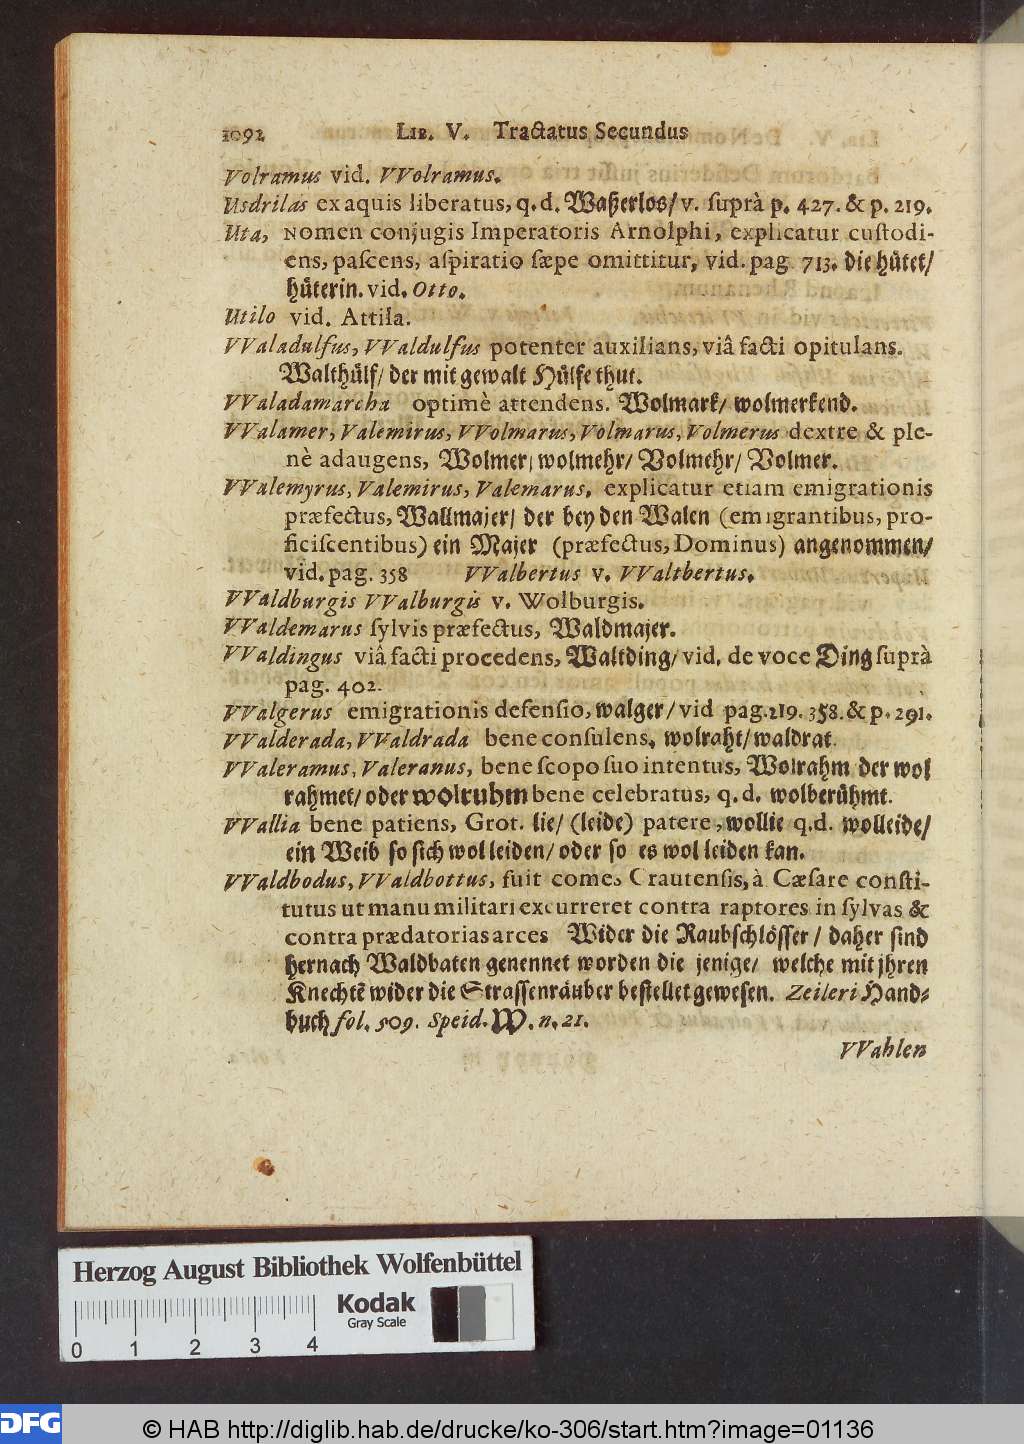 1092 LIB. V. Tractatus Secundus
Volramus vid. VVolramus.
Usdrilas ex aquis liberatus, q. d. Waßerlos/ v. suprà p. 427. & p. 219.
Uta, Nomen conjugis Imperatoris Arnolphi, explicatur custodi-
ens, pascens, aspiratio sæpe omittitur, vid. pag 713. die hütet/
hüterin. vid. Otto.
Utilo vid. Attila.
VValadulfus, VValdulfus potenter auxilians, viâ facti opitulans.
Walthülf/ der mit gewalt Hülfe thut.
VValadamarcha optimè attendens. Wolmark/ wolmerkend.
VValamer, Valemirus, VVolmarus, Volmarus, Volmerus dextre & ple-
nè adaugens, Wolmer/ wolmehr/ Volmehr/ Volmer.
VValemyrus, Valemirus, Valemarus. explicatur etiam emigrationis
præfectus, Wallmajer/ der bey den Walen (emigrantibus, pro-
ficiscentibus) ein Majer (præfectus, Dominus) angenommen/
vid. pag. 358 VValbertus v. VValtbertus.
VValdburgis VValburgis v. Wolburgis.
VValdemarus sylvis præfectus, Waldmajer.
VValdingus viâ facti procedens, Waltding/ vid. de voce Ding suprà
pag. 402.
VValgerus emigrationis defensio, walger/ vid pag. 219. 358. & p. 291.
VValderada, VValdrada bene consulens, wolraht/ waldrat.
VValeramus, Valeranus, bene scopo suo intentus, Wolrahm der wol
rahmet/ oder wolruhm bene celebratus, q. d. wolberühmt.
VVallia bene patiens, Grot. lie/ (leide) patere, wollie q. d. wolleide/
ein Weib so sich wol leiden/ oder so es wol leiden kan.
VValdbodus, VValdbottus, fuit comes Crautensis, à Cæsare consti-
tutus ut manu militari excurreret contra raptores in sylvas &
contra prædatorias arces Wider die Raubschlösser/ daher sind
hernach Waldbaten genennet worden die jenige/ welche mit jhren
Knechtē wider die Strassenräuber bestellet gewesen. Zeileri Hand-
buch fol. 509. Speid. W. n. 21.
VVahlen
Herzog August Bibliothek Wolfenbüttel
Kodak
Gray Scale
0 1 2 3 4
DFG © HAB http://diglib.hab.de/drucke/ko-306/start.htm?image=01136